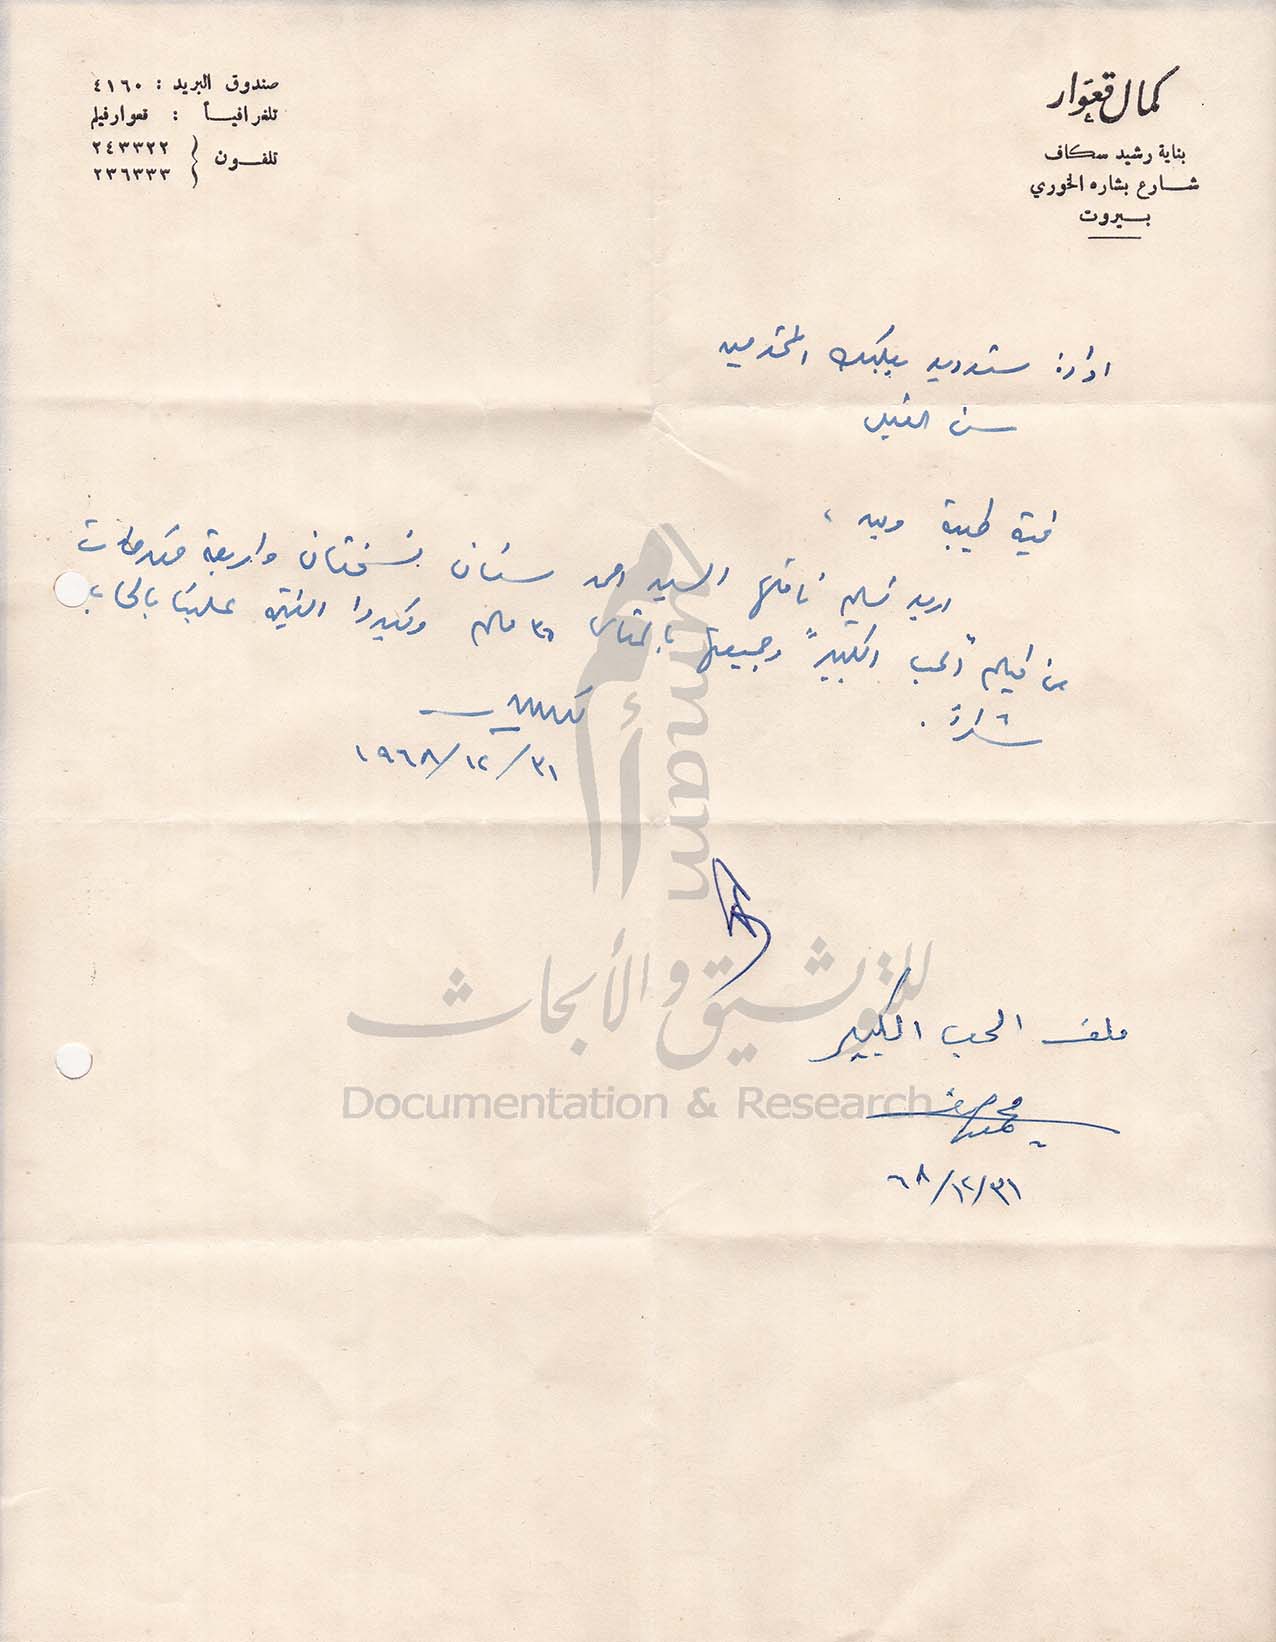 كمال قعوار
بناية رشيد سكاف
شارع بشاره الخوري
بيروت
صندوق البريد : ٤١٦٠
تلغرافياً : قعوار فيلم
تلفون { ٢٤٣٣٢٢
٢٣٦٣٣٣
ادارة ستوديو بعلبك المحترمين
سن الفيل
تحية طيبة وبعد ،
اريد تسليم ناقلها السيد احمد سنان نسختان واربعة مقدمات
من فيلم "الحب الكبير" وجميعها بالمقاس ٣٥ ملم وتقيدوا القيمة علينا بالحساب
شاكراً .
٣١/١٢/١٩٦٨
ملف الحب الكبير
٣١/١٢/٦٨
أمم
umam
للتوثيق والأبحاث
Documentation & Research